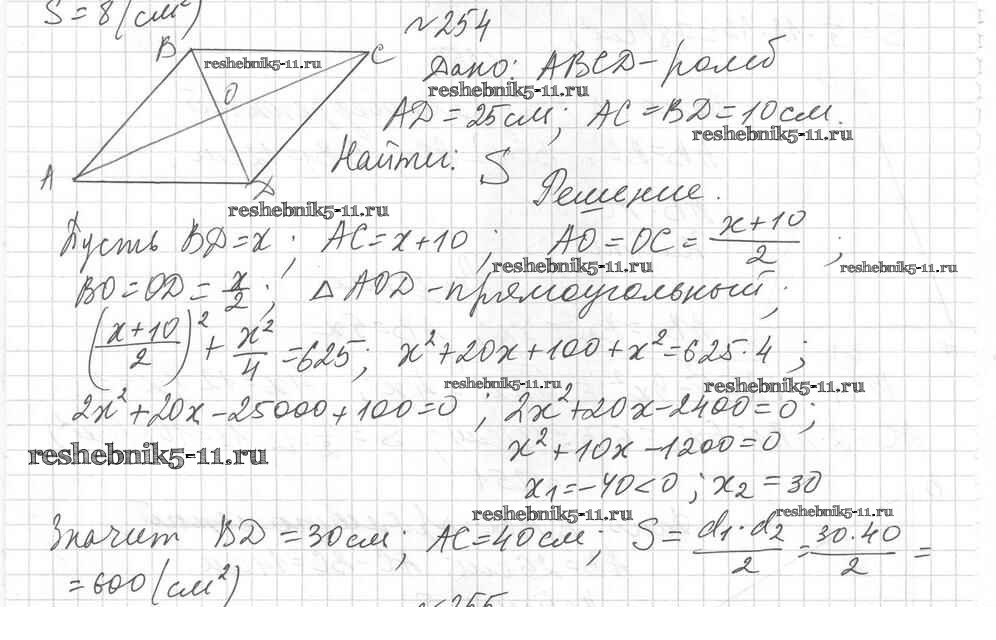 S = 8 (см²)
№254
B
C
O
A
D
Дано: ABCD - ромб
AD = 25 см; AC = BD = 10 см.
Найти: S
Решение.
Пусть BD = x; AC = x+10; AO = OC = (x+10)/2;
BO = OD = x/2; △ AOD - прямоугольный;
((x+10)/2)² + x²/4 = 625; x² + 20x + 100 + x² = 625·4;
2x² + 20x - 25000 + 100 = 0; 2x² + 20x - 2400 = 0;
x² + 10x - 1200 = 0
x₁ = -40 < 0; x₂ = 30
Значит BD = 30 см; AC = 40 см; S = (d₁·d₂)/2 = (30·40)/2 =
= 600 (см²)
№255
reshebnik5-11.ru
reshebnik5-11.ru
reshebnik5-11.ru
reshebnik5-11.ru
reshebnik5-11.ru
reshebnik5-11.ru
reshebnik5-11.ru
reshebnik5-11.ru
reshebnik5-11.ru
reshebnik5-11.ru
reshebnik5-11.ru